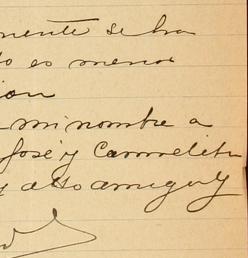 mente se ha
lo es menos
ion
mi nombre a
José y Carmelita
y